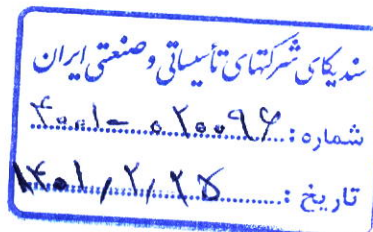 سندیکای شرکتهای تأسیساتی و صنعتی ایران
شماره : ۴۰۰۱-۰۲۰۰۹۶
تاریخ : ۱۴۰۱/۲/۲۵